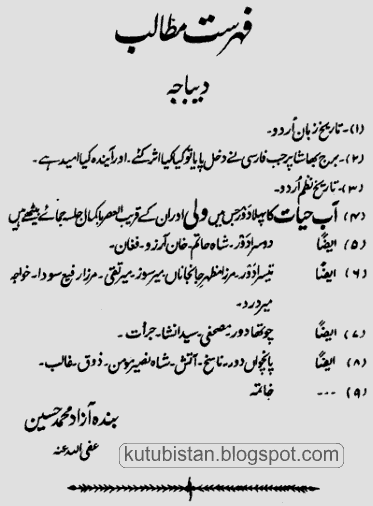 فہرست مطالب
دیباچہ
(۱)۔ تاریخ زبان اُردو۔
(۲)۔ برج بھاشا پر جب فارسی نے دخل پایا تو کیا کیا اثر کئے۔ اور آیندہ کیا امید ہے۔
(۳)۔ تاریخ نظم اُردو۔
(۴) آب حیات کا پہلا دَور جس میں ولی اور ان کے قریب العصر باکمال جلسہ جمائے بیٹھے ہیں
(۵) ایضًا دوسرا دَور۔ شاہ حاتم۔ خان آرزو۔ فغان۔
(۶) ایضًا تیسرا دَور۔ مرزا مظہر جانجاناں۔ میر سوز۔ میر تقی۔ مرزا رفیع سودا۔ خواجہ
میر درد۔
(۷) ایضًا چوتھا دور۔ مصحفی۔ سید انشا۔ جرأت۔
(۸) ایضًا پانچواں دور۔ ناسخ۔ آتش۔ شاہ نصیر۔ مومن۔ ذوق۔ غالب۔
(۹) ۔۔۔ خاتمہ
بندہ آزاد محمد حسین
عفی اللہ عنہ
kutubistan.blogspot.com